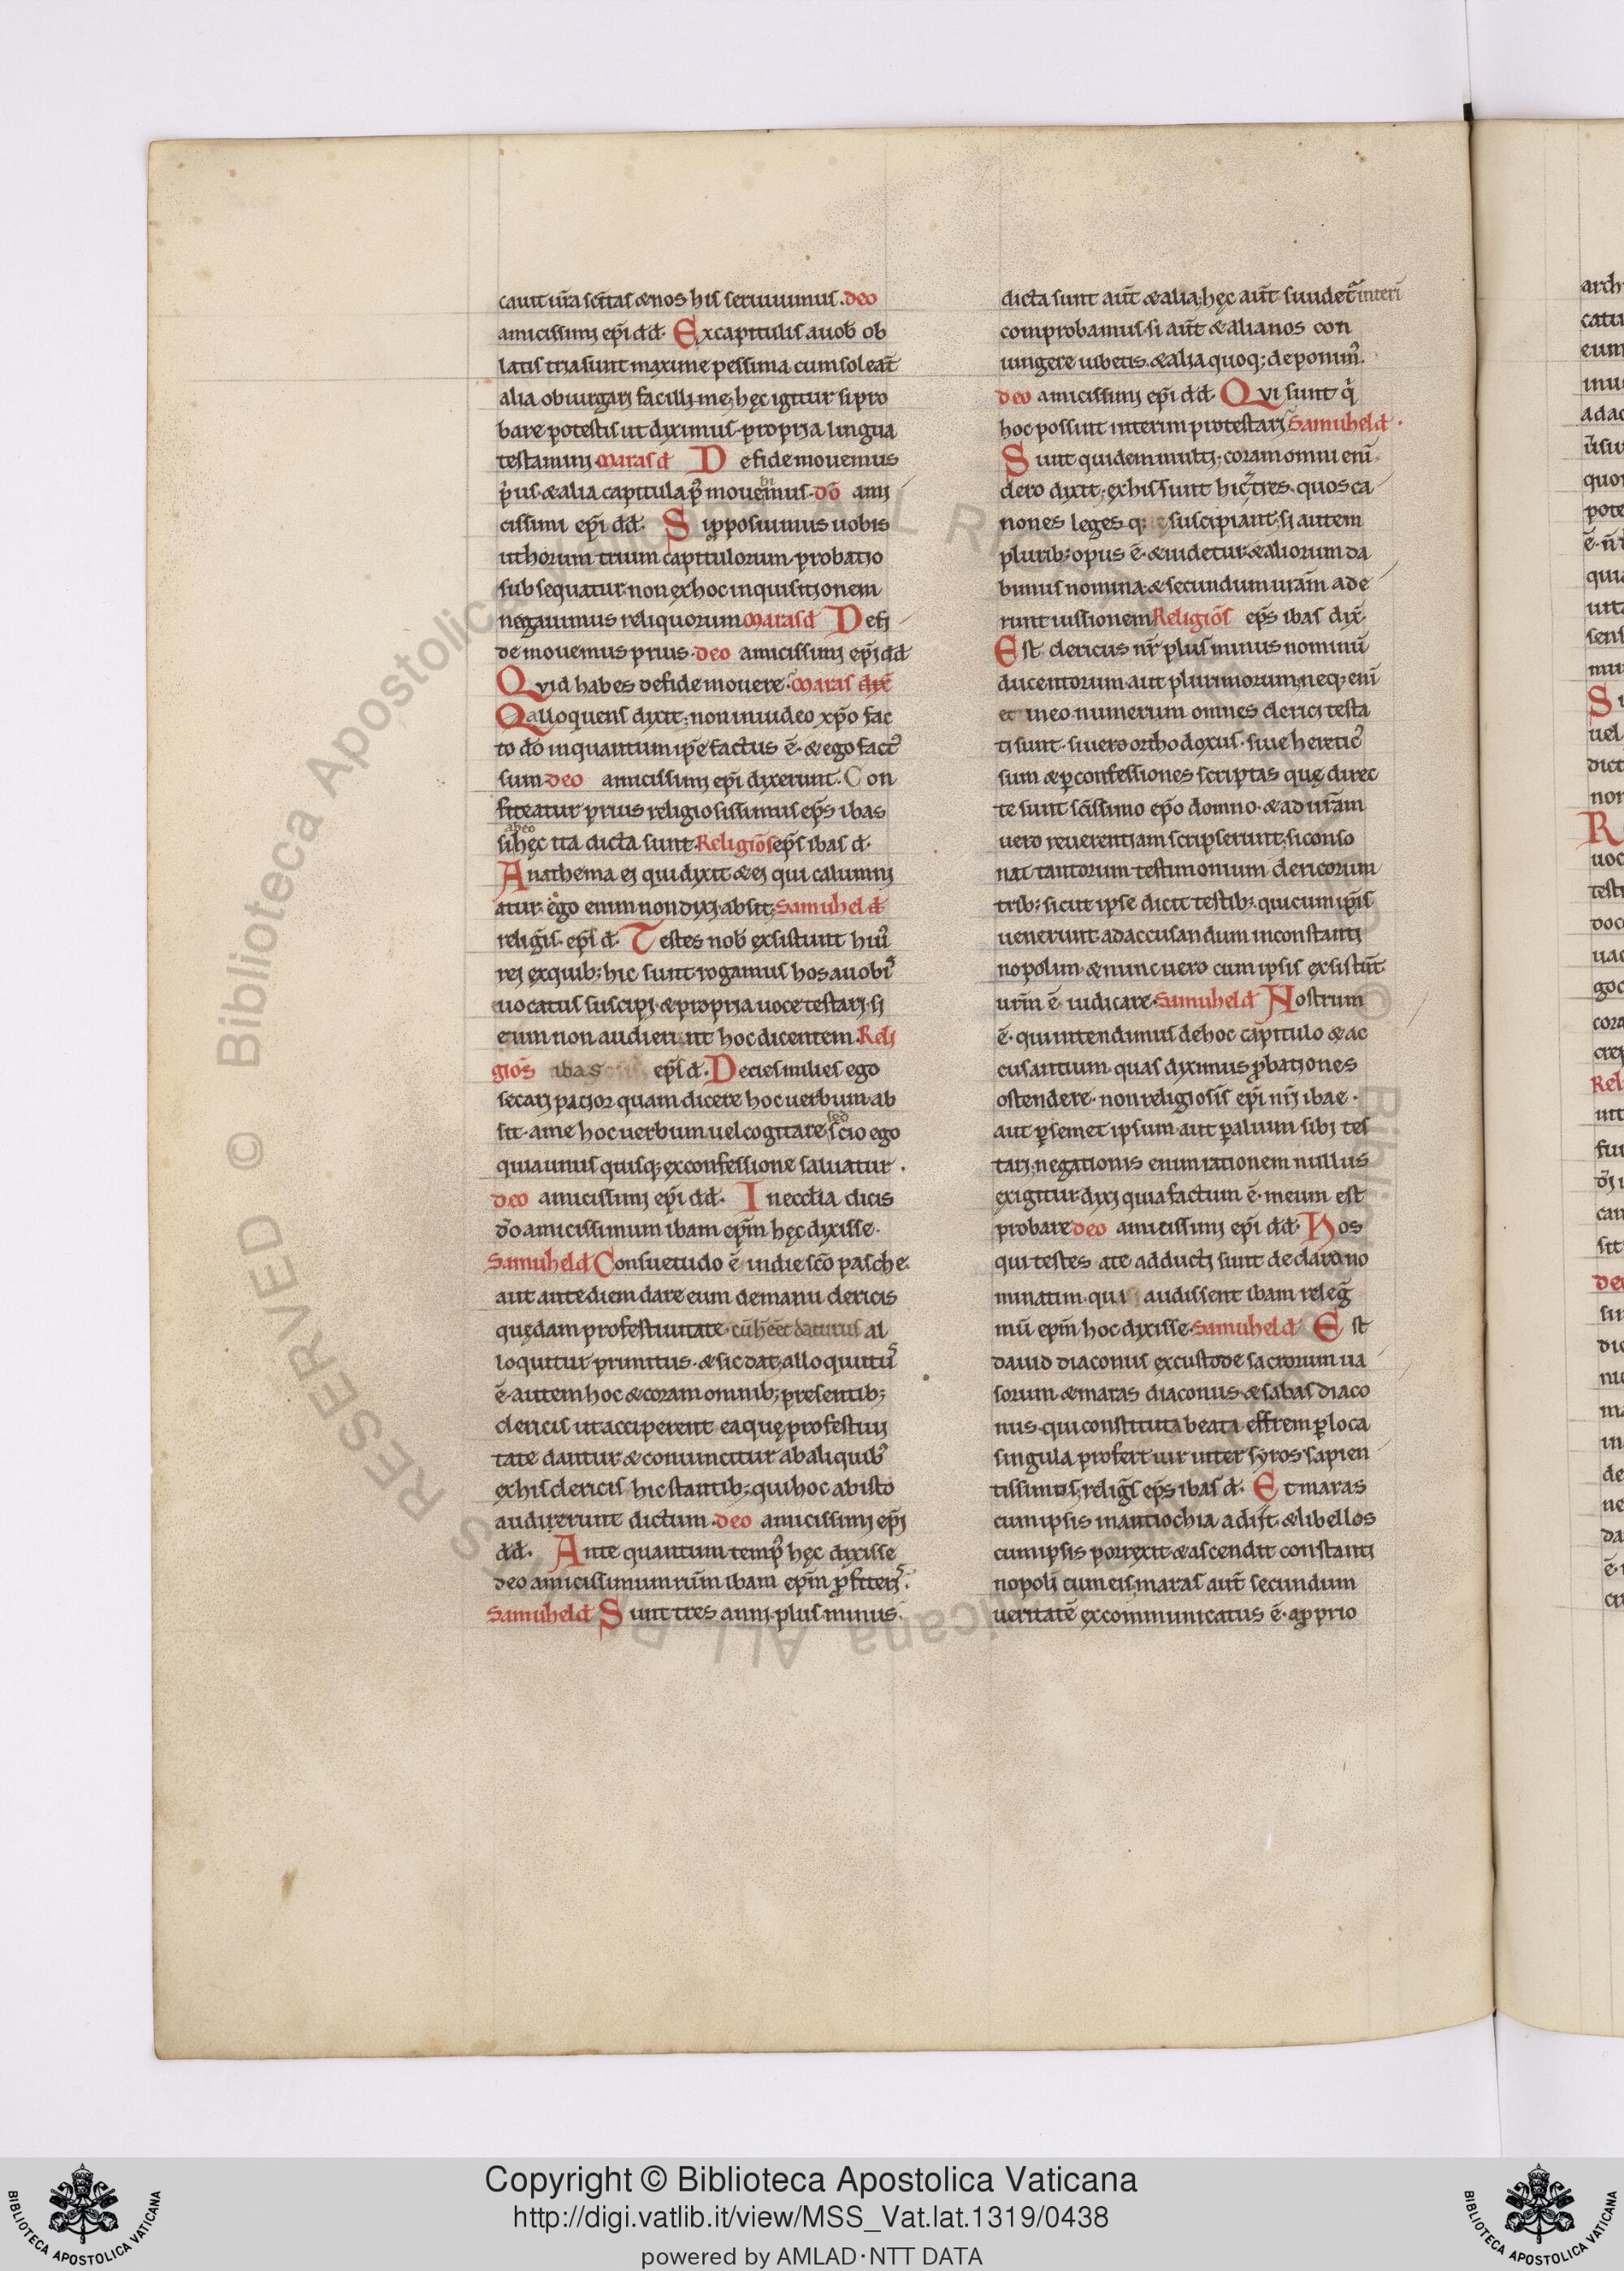 cauit ur̄a sc̄itas & nos his seruiuimus. deo
amicissimi ep̄i dd̄. Ex capitulis a uob̄ ob
latis tria sunt maxime pessima cum soleat̄
alia obiurgari facillime; hęc igitur si pro
bare potestis ut diximus propria lingua
testamini Maras d̄ De fide mouemus
p̄us. & alia capitula p᷒ mouebimus. dō ami
cissimi ep̄i dd̄. Si pposuimus uobis
ut horum trium capitulorum probatio
subsequatur non ex hoc inquisitionem
negauimus reliquorum Maras d̄ De fi
de mouemus prius. deo amicissimi ep̄i dd̄
Quid habes de fide mouere. Maras dix̄
Qalloquens dixit; non inuideo xp̄o fac
to dō in quantum ip̄e factus ē. & ego fact᷒
sum deo amicissimi ep̄i dixerunt. Con
fiteatur prius religiosissimus ep̄s ibas
si ab eo hęc ita dicta sunt. Religiōs ep̄s ibas d̄.
Anathema ei qui dixit & ei qui calumni
atur. ego enim non dixi absit; Samuhel d̄
religīs. ep̄s d̄. Testes nob̄ exsistunt hui᷒
rei ex quib; hic sunt rogamus hos a uobi᷒
uocatus suscipi & propria uoce testari si
eum non audierunt hoc dicentem. Reli
giōs ibas ep̄s d̄. Decies milies ego
secari patior quam dicere hoc uerbum ab
sit. a me hoc uerbum uel cogitare sed scio ego
quia unus quisq; ex confessione saluatur.
deo amicissimi ep̄i dd̄. In eccl̄ia dicis
dō amicissimum ibam ep̄m hęc dixisse.
Samuhel d̄ Consuetudo ē in die sc̄o pasche.
aut ante diem dare eum de manu clericis
quędam pro festiuitate. cū hēēt daturus al
loquitur primitus. & sic dat; alloquutu᷒
ē autem hoc & coram omnib; presentib;
clericis ut acciperent ea quę pro festiui
tate dantur & conuincitur ab aliquib᷒
ex his clericis hic stantib; qui hoc ab isto
audierunt dictum. deo amicissimi ep̄i
dd̄. Ante quantum temp᷒ hęc dixisse
deo amicissimum ūrm ibam ep̄m p̄fiteri᷒.
Samuhel d̄ Sunt tres anni plus minus.
dicta sunt aūt & alia; hęc aūt suudet̄ interī
comprobamus. si aūt & alia nos con
iungere iubetis. & alia quoq; deponim᷒.
deo amicissimi ep̄i dd̄. Qui sunt q̄
hoc possint interim protestari Samuhel d̄.
Sunt quidem multi; coram omni enī
clero dixit; ex his sunt hic tres. quos ca
nones leges q; suscipiant; si autem
plurib; opus ē. & uidetur & aliorum da
bimus nomina. & secundum ur̄am ade
runt iussionem Religiōs ep̄s ibas dix̄.
Est clericus nr̄ plus minus nominū
ducentorum aut plurimorum; neq; enī
et in eo numerum omnes clerici testa
ti sunt. siue ro orthodoxus. siue heretic᷒
sum & p̄ confessiones scriptas quę direc
te sunt sc̄issimo ep̄o domno. & ad ur̄am
uero reuerentiam scripserunt; si conso
nat tantorum testimonium clericorum
trib; sicut ipse dicit testib; qui cum ip̄is
uenerunt ad accusandum in constanti
nopolim. & nunc uero cum ipsis exsistūt
urm̄ ē iudicare. Samuhel d̄ Nostrum
ē. qui intendimus de hoc capitulo & ac
cusantium. quas diximus p̄bationes
ostendere. non religiosis̄ ep̄i nr̄i ibae.
aut p̄ semet ipsum aut p̄ alium sibi tes
tari; negationis enim rationem nullus
exigitur. dixi quia factum ē. meum est
probare deo amicissimi ep̄i dd̄. Hos
qui testes a te adducti sunt declarano
minatim. qui audissent ibam releḡ
mū ep̄m hoc dixisse. Samuhel d̄ Est
dauid diaconus ex custode sacrorum ua
sorum. & maras diaconus & sabas diaco
nus. qui constituta beata effrem p̄ loca
singula profert uir inter syros sapien
tissimus; reliḡs ep̄s ibas d̄. Et maras
cum ipsis in antiochia adiit. & libellos
cum ipsis porrexit & ascendit constanti
nopolī cum eis; maras aūt secundum
ueritatē excommunicatus ē. a p̄prio
Copyright © Biblioteca Apostolica Vaticana
http://digi.vatlib.it/view/MSS_Vat.lat.1319/0438
powered by AMLAD·NTT DATA